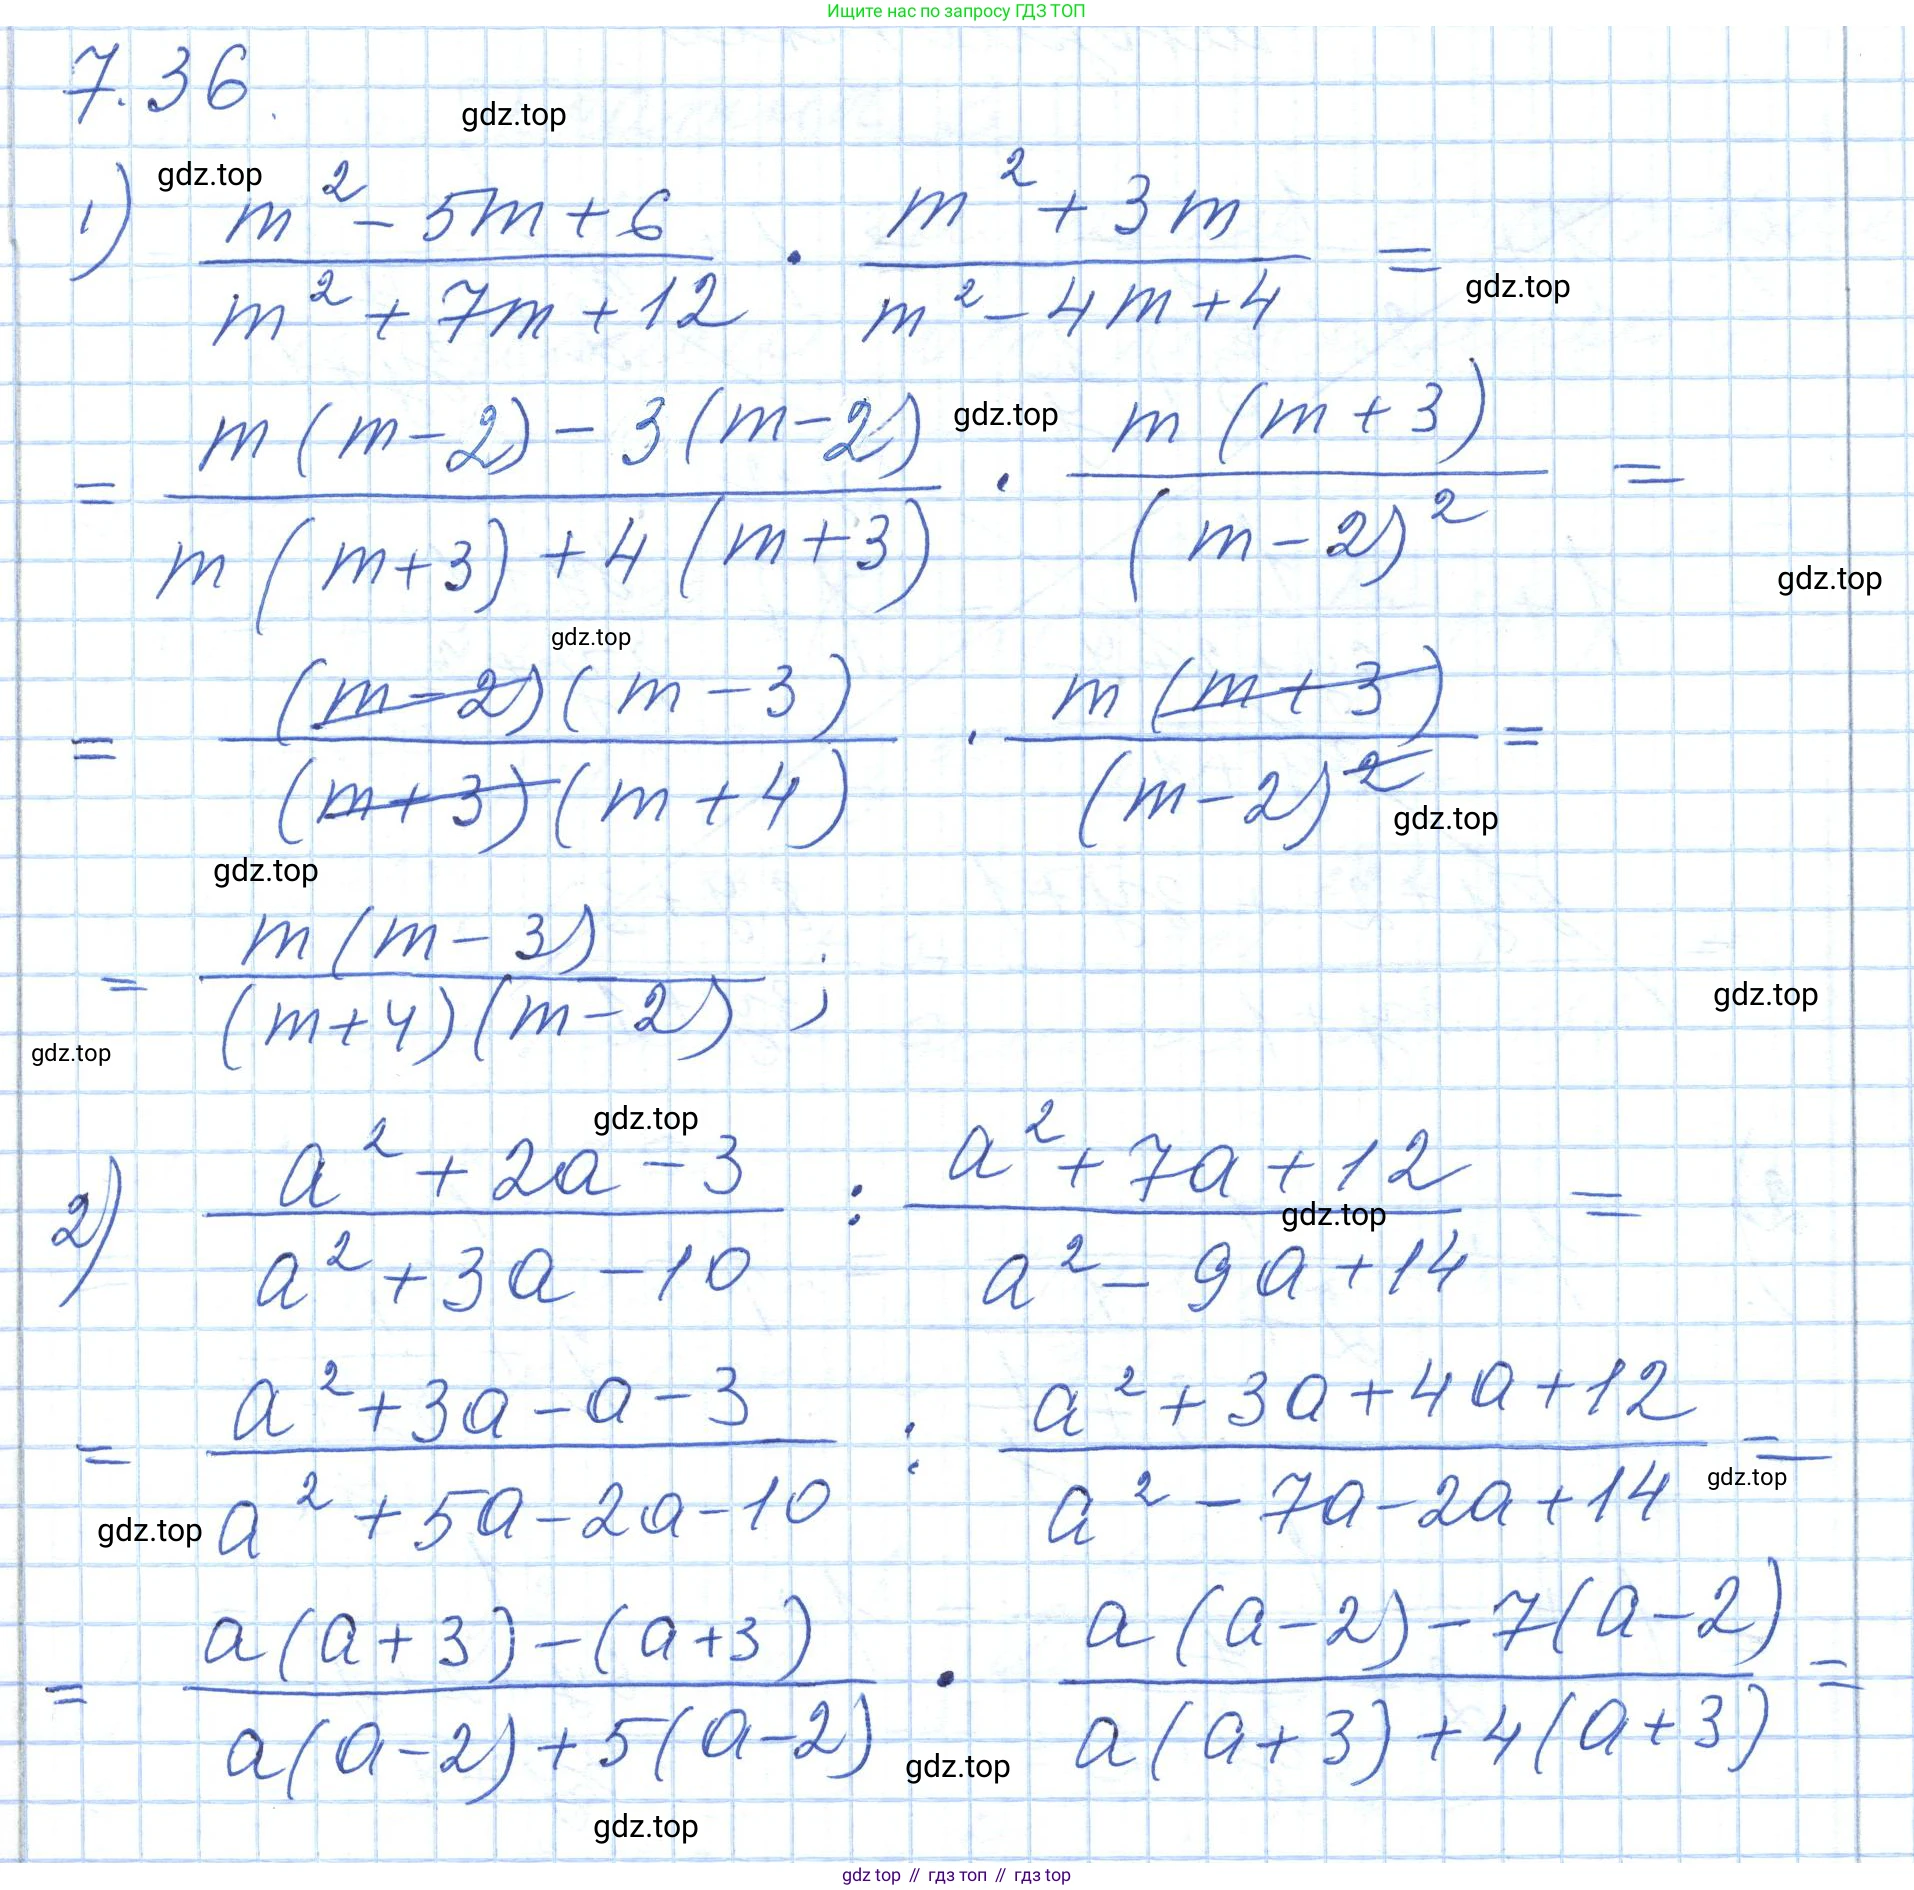 Ищите нас по запросу ГДЗ ТОП
7.36.
gdz.top
gdz.top
1) (m² - 5m + 6)/(m² + 7m + 12) · (m² + 3m)/(m² - 4m + 4) =
gdz.top
= (m(m-2) - 3(m-2))/(m(m+3) + 4(m+3)) · (m(m+3))/((m-2)²) =
gdz.top
gdz.top
gdz.top
= ((m-2)(m-3))/((m+3)(m+4)) · (m(m+3))/((m-2)²) =
gdz.top
gdz.top
= (m(m-3))/((m+4)(m-2)) ;
gdz.top
gdz.top
gdz.top
2) (a² + 2a - 3)/(a² + 3a - 10) : (a² + 7a + 12)/(a² - 9a + 14) =
gdz.top
= (a² + 3a - a - 3)/(a² + 5a - 2a - 10) : (a² + 3a + 4a + 12)/(a² - 7a - 2a + 14) =
gdz.top
gdz.top
= (a(a+3) - (a+3))/(a(a-2) + 5(a-2)) · (a(a-2) - 7(a-2))/(a(a+3) + 4(a+3)) =
gdz.top
gdz.top
gdz top // гдз топ // гдз top